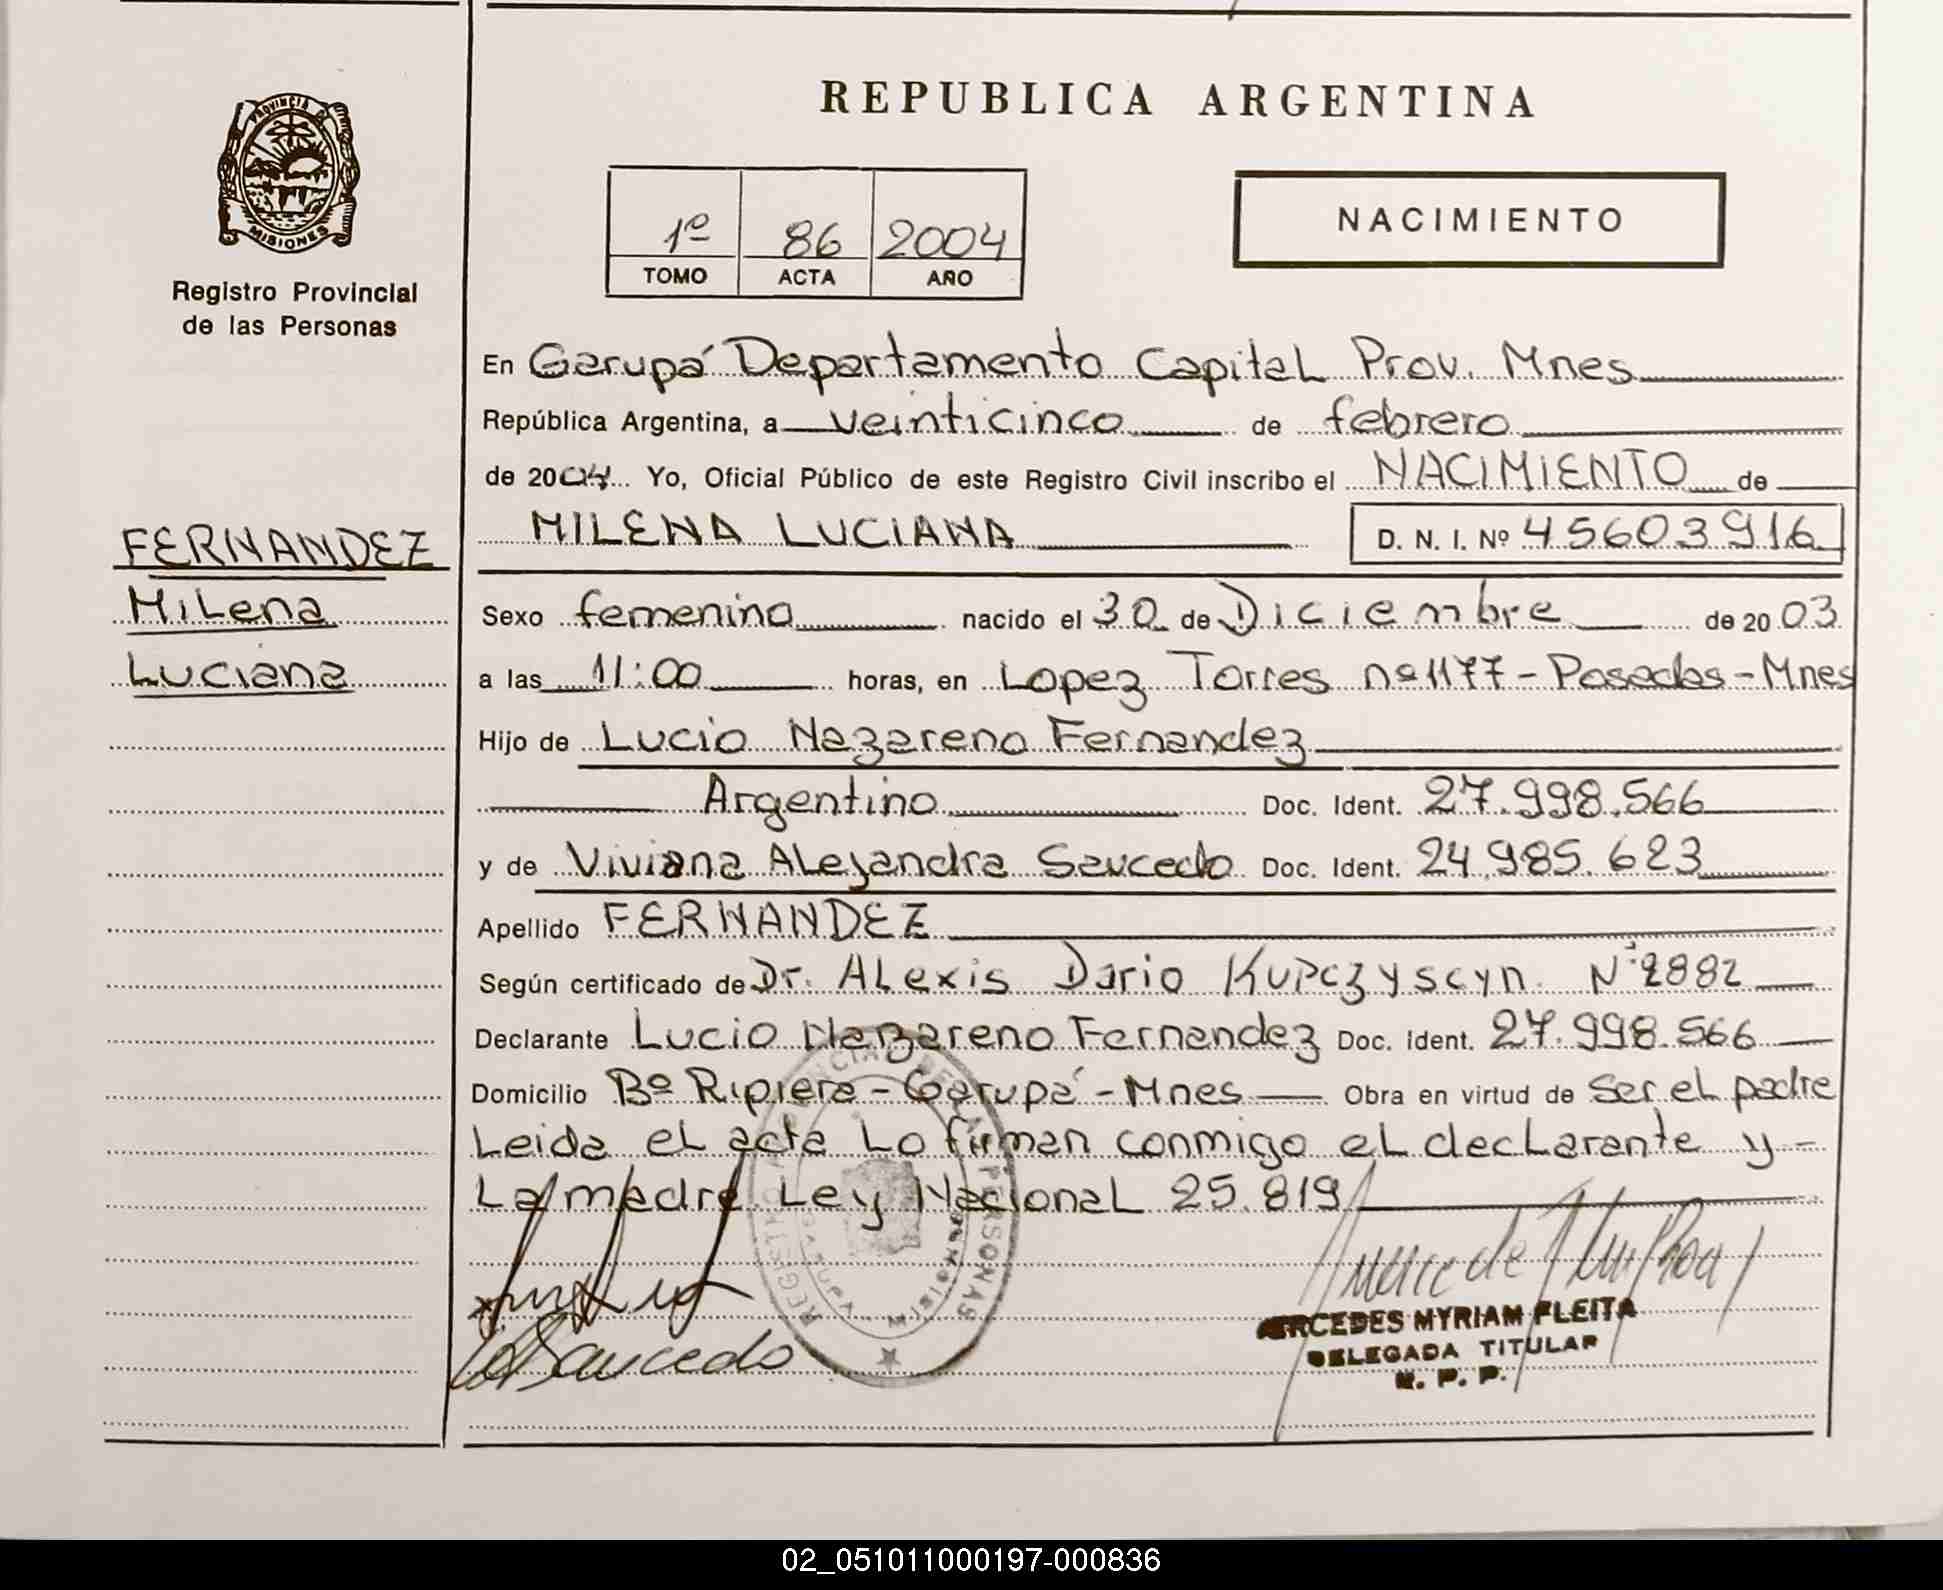 REPUBLICA ARGENTINA
PROVINCIA DE MISIONES
Registro Provincial
de las Personas
1º 86 2004
TOMO ACTA AÑO
NACIMIENTO
En Garupá Departamento Capital Prov. Mnes
República Argentina, a veinticinco de febrero
de 2004 Yo, Oficial Público de este Registro Civil inscribo el NACIMIENTO de
MILENA LUCIANA D. N. I. Nº 45603916
FERNANDEZ
Milena
Luciana
Sexo femenino nacido el 30 de Diciembre de 2003
a las 11:00 horas, en Lopez Torres nº 1177 - Posadas - Mnes
Hijo de Lucio Nazareno Fernandez
Argentino Doc. Ident. 27.998.566
y de Viviana Alejandra Saucedo Doc. Ident. 24.985.623
Apellido FERNANDEZ
Según certificado de Dr. Alexis Dario Kupczyscyn. Nº 2882
Declarante Lucio Nazareno Fernandez Doc. Ident. 27.998.566
Domicilio Bº Ripiera - Garupá - Mnes Obra en virtud de ser el padre
Leida el acta lo firman conmigo el declarante y -
La madre Ley Nacional 25.819
REGISTRO PROVINCIAL DE LAS PERSONAS
GARUPA MISIONES
Saucedo
MERCEDES MYRIAM FLEITA
DELEGADA TITULAR
R. P. P.
02_051011000197-000836